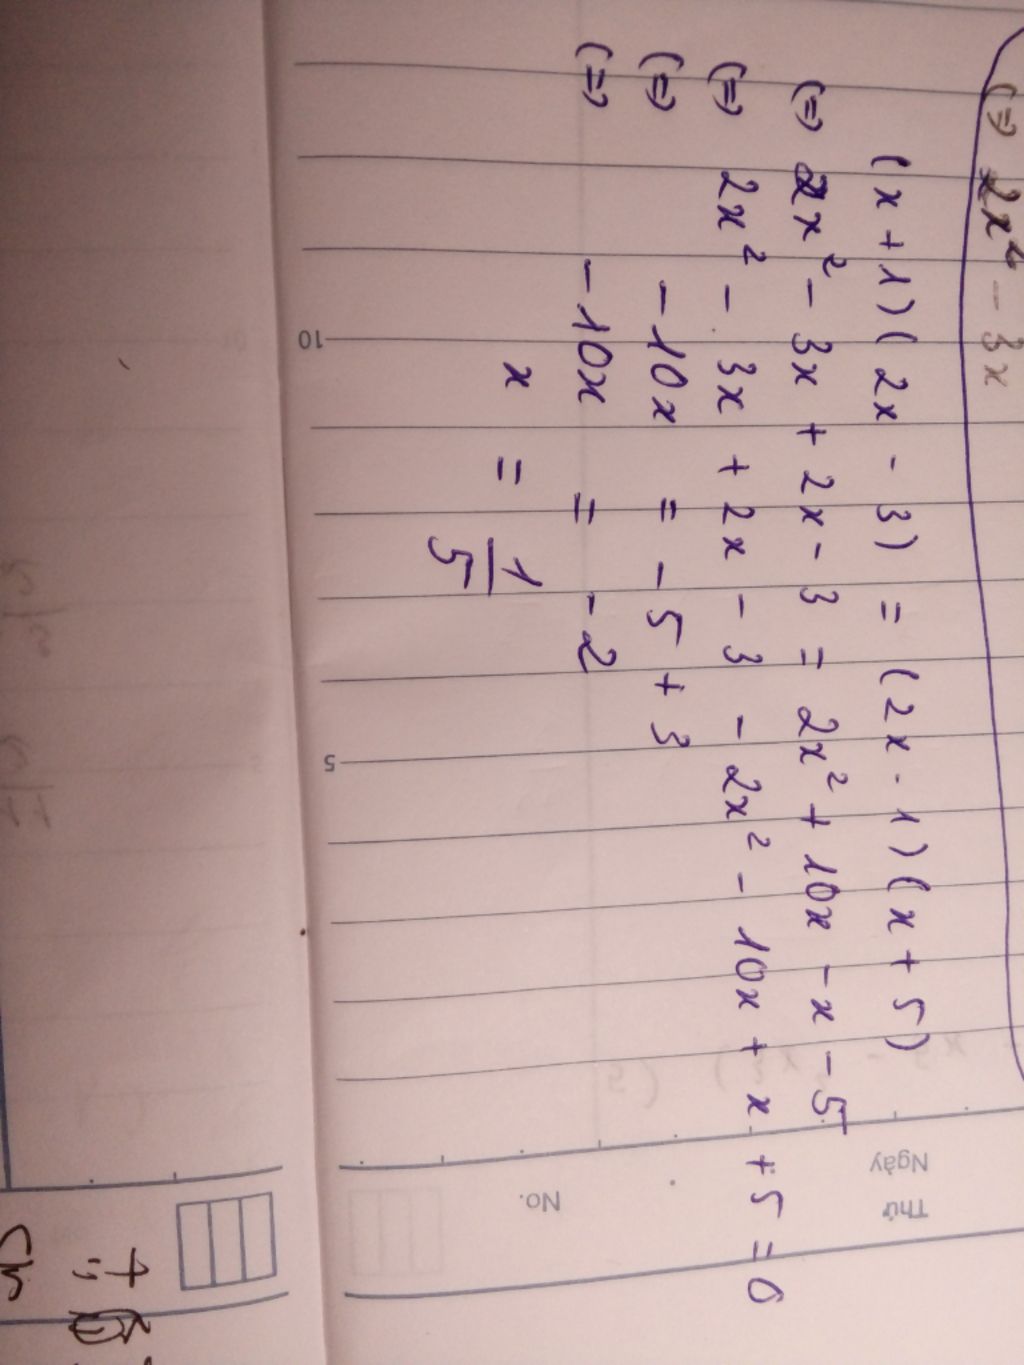 (=) 2x² - 3x
(x+1)(2x - 3) = (2x - 1)(x + 5)
(=) 2x² - 3x + 2x - 3 = 2x² + 10x - x - 5
(=) 2x² - 3x + 2x - 3 - 2x² - 10x + x + 5 = 0
(=) -10x = -5 + 3
(=) -10x = -2
x = 1/5
Thứ
Ngày
No.
10
5